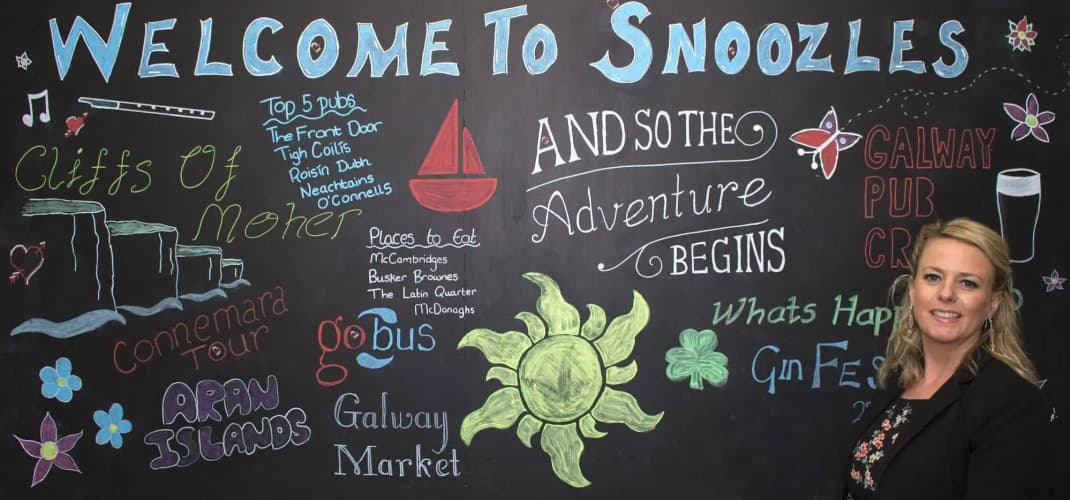 WELCOME TO SNOOZLES
Top 5 pubs
The Front Door
Tigh Coilis
Roisin Dubh
Neachtains
O'Connells
AND SO THE
Adventure
BEGINS
GALWAY
PUB
Cliffs Of
Moher
Places to Eat
McCambridges
Busker Brownes
The Latin Quarter
McDonaghs
Connemara
Tour
go bus
Whats
ARAN
ISLANDS
Galway
Market
Gin